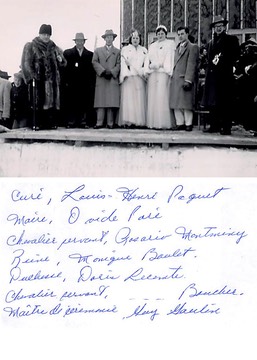 Curé, Louis-Henri Paquet
Maire, Ovide Paré
Chevalier servant, Rosario Montminy
Reine, Monique Baulet.
Duchesse, Doris Lecente.
Chevalier servant, _ _ _ Boucher.
Maître de cérémonie, Guy Goulin